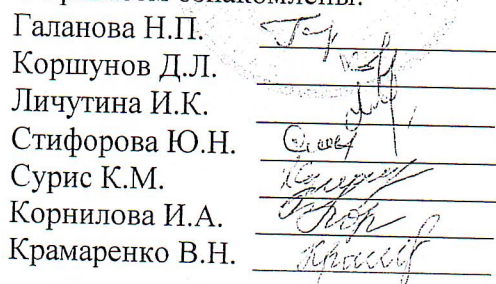 ознакомлены.
Галанова Н.П.
Коршунов Д.Л.
Личутина И.К.
Стифорова Ю.Н.
Сурис К.М.
Корнилова И.А.
Крамаренко В.Н.